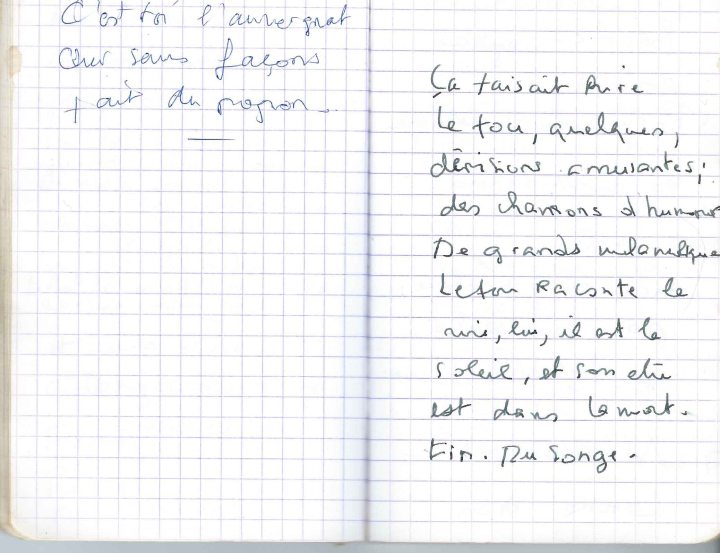 C'est toi l'auvergnat
Qui sans façons
+ ait du pognon.
Ça faisait Rire
Le fou, quelques,
dérisions amusantes;
des chansons d'humour
De grands mélancolique
Le fou Raconte le
, lui, il est le
soleil, et son
est dans la mort.
Fin. Du Songe.